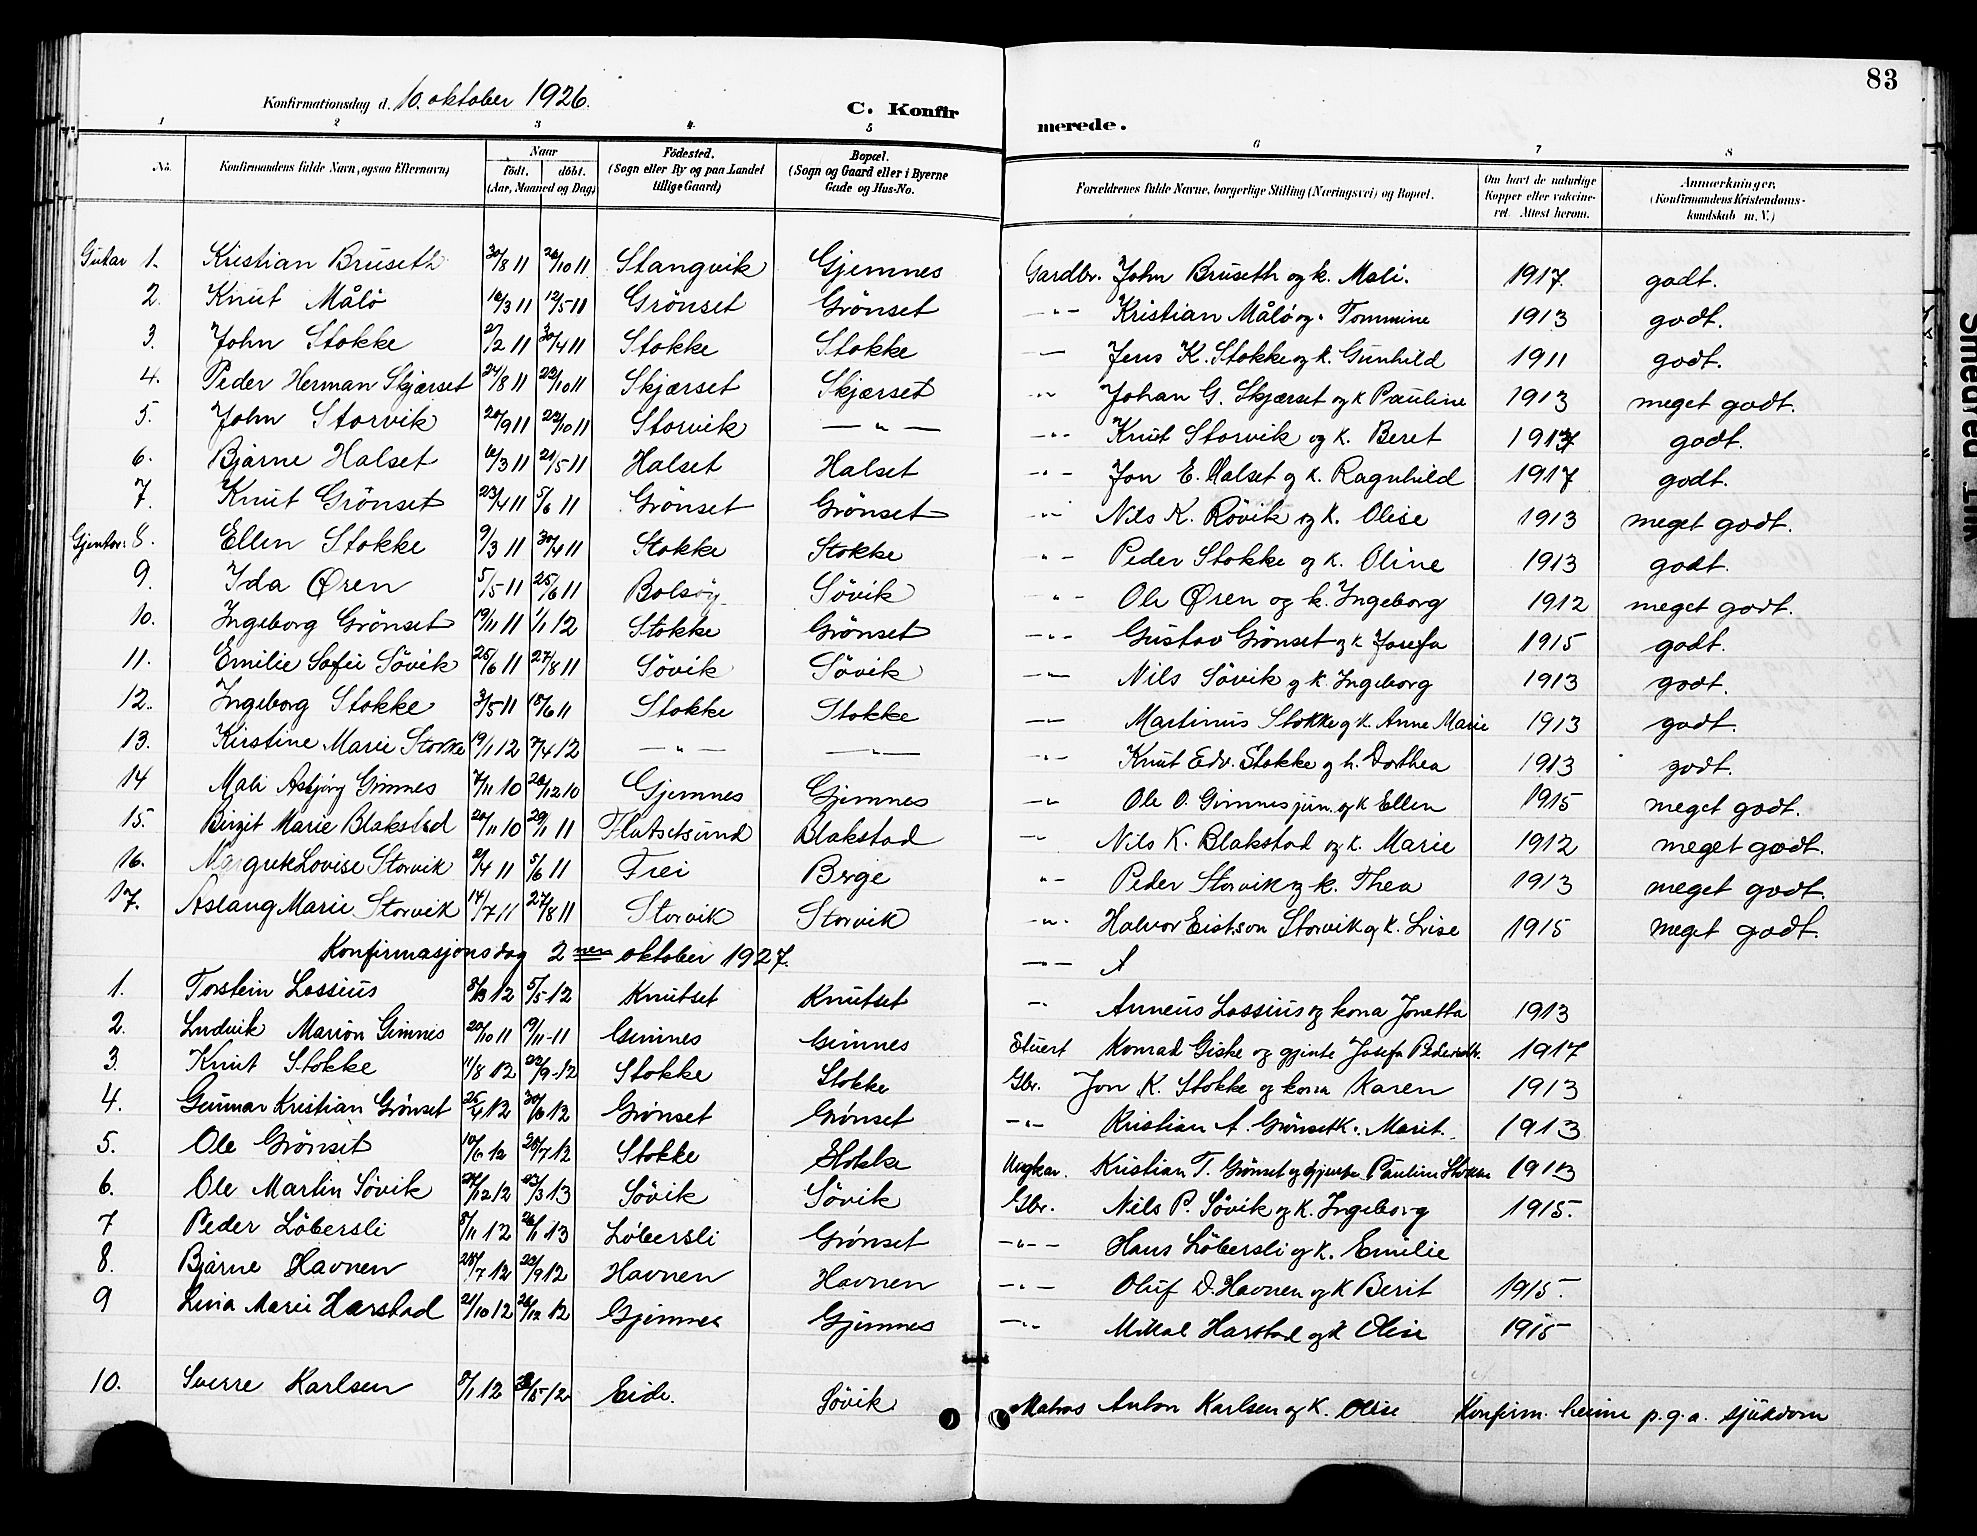 83
Konfirmationsdag d. 10. oktober 1926. C. Konfirmerede.
1 2 3 4 5 6 7 8
No. Konfirmandens fulde Navn, ogsaa Efternavn) Naar födt. döbt. (Aar, Maaned og Dag) Födested. (Sogn eller By og paa Landet tillige Gaard) Bopæl. (Sogn og Gaard eller i Byerne Gade og Hus-No. Forældrenes fulde Navne, borgerlige Stilling (Næringsvei) og Bopæl. Om havt de naturlige Kopper eller vakcineret. Attest herom. Anmærkninger, (Konfirmandens Kristendomskundskab m. V.)
Gutar 1. Kristian Bruseth 30/8 11 26/10 11 Stangvik Gjemnes Gardbr. John Bruseth og k. Mali. 1917. godt.
2. Knut Målö 16/3 11 12/5-11 Grönset Grönset -"- Kristian Målö og Tommine 1913 godt.
3. John Stokke 2/2 11 30/4 11 Stokke Stokke — Jens K. Stokke og k. Gunhild 1911 godt.
4. Peder Herman Skjærset 24/8 11 22/10 11 Skjærset Skjærset -"- Johan G. Skjærset og k Pauline 1913 meget godt.
5. John Storvik 20/9 11 22/10 11 Storvik — " — -"- Knut Storvik og k. Beret 1917 godt.
6. Bjarne Halset 16/3 11 21/5 11 Halset Halset -"- Jon E. Halset og k. Ragnhild 1917 godt.
7. Knut Grönset 23/4 11 5/6 11 Grönset Grönset -"- Nils K. Rövik og k. Olise 1913 meget godt.
Gjentor: 8. Ellen Stokke 9/3 11 30/4 11 Stokke Stokke -"- Peder Stokke og k. Oline 1913 godt.
9. Ida Øren 5/5-11 25/6 11 Bolsöy Sövik -"- Ole Øren og k. Ingeborg 1912 meget godt.
10. Ingeborg Grönset 19/11 11 1/1 12 Stokke Grönset -"- Gustav Grönset og k Josefa 1915 godt.
11. Emilie Sofie Sövik 25/6 11 27/8 11 Sövik Sövik -"- Nils Sövik og k. Ingeborg 1913 godt.
12. Ingeborg Stokke 3/5 11 18/6 11 Stokke Stokke -"- Martinus Stokke og k. Anne Marie 1913 godt.
13. Kirstine Marie Stokke 19/1 12 7/4 12 — " — — " — -"- Knut Edv. Stokke og h. Dorthea 1913 godt.
14 Mali Asbjörg Gimnes 7/11 10 26/12 10 Gjemnes Gjemnes -"- Ole O. Gimnes jun. og k Ellen 1915 meget godt.
15. Birgit Marie Blakstad 20/11 10 29/1 11 Flatsetsund Blakstad -"- Nils K. Blakstad og k. Marie 1912 meget godt.
16. Margrete Lovise Storvik 2/4 11 5/6 11 Frei Berge -"- Peder Storvik og k. Thea 1913 meget godt.
17. Aslaug Marie Storvik 14/7 11 27/8 11 Storvik Storvik -"- Halvor Eistson Storvik og k. Lise 1915 meget godt.
Konfirmasjonsdag 2nen oktober 1927. -"- A
1. Torstein Lossius 8/3 12 5/5-12 Knutset Knutset -"- Anneus Lossius og kona Jonetta 1913
2. Ludvik Marion Gimnes 20/10 11 19/11-11 Gimnes Gimnes Stuert Konrad Giske og gjente Josefa Pedersdtr. 1917
3. Knut Stokke 11/8 12 22/9-12 Stokke Stokke Gbr. Jon K. Stokke og kona Karen 1913
4. Gunnar Kristian Grönset 25/4 12 30/6 12 Grönset Grönset -"- Kristian A. Grönset k. Marit. 1913
5. Ole Grönset 10/6 12 28/7 12 Stokke Stokke Ungkar. Kristian T. Grönset og gjente Pauline Stokke 1913
6. Ole Martin Sövik 24/12 12 23/3 13 Sövik Sövik Gbr. Nils P. Sövik og k. Ingeborg 1915.
7 Peder Löbersli 8/11 12 26/1 13 Löbersli Grönset -"- Hans Löbersli og k. Emilie
8. Bjarne Havnen 28/7 12 22/9 12 Havnen Havnen -"- Oluf D. Havnen og k Berit 1915.
9 Livia Marie Harstad 21/10 12 26/12 12 Gjemnes Gjemnes -"- Mikal Harstad og k Olise 1915
10. Sverre Karlsen 8/1 12 /5-12 Eide. Sövik Matros Anton Karlsen og k. Olise Konfirm. heime p.g.a. sjukdom